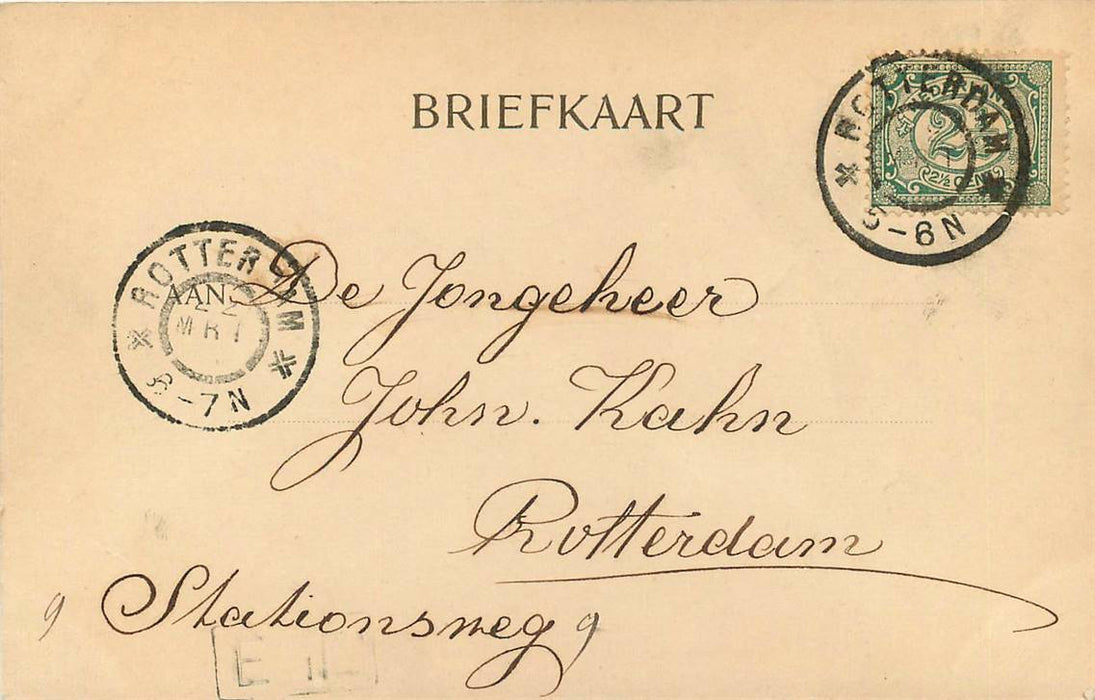 BRIEFKAART
ROTTERDAM
5-6N
2½ CENT
ROTTERDAM
22
MRT
6-7N
AAN
De Jongeheer
John. Kahn
Rotterdam
9 Stationsweg 9